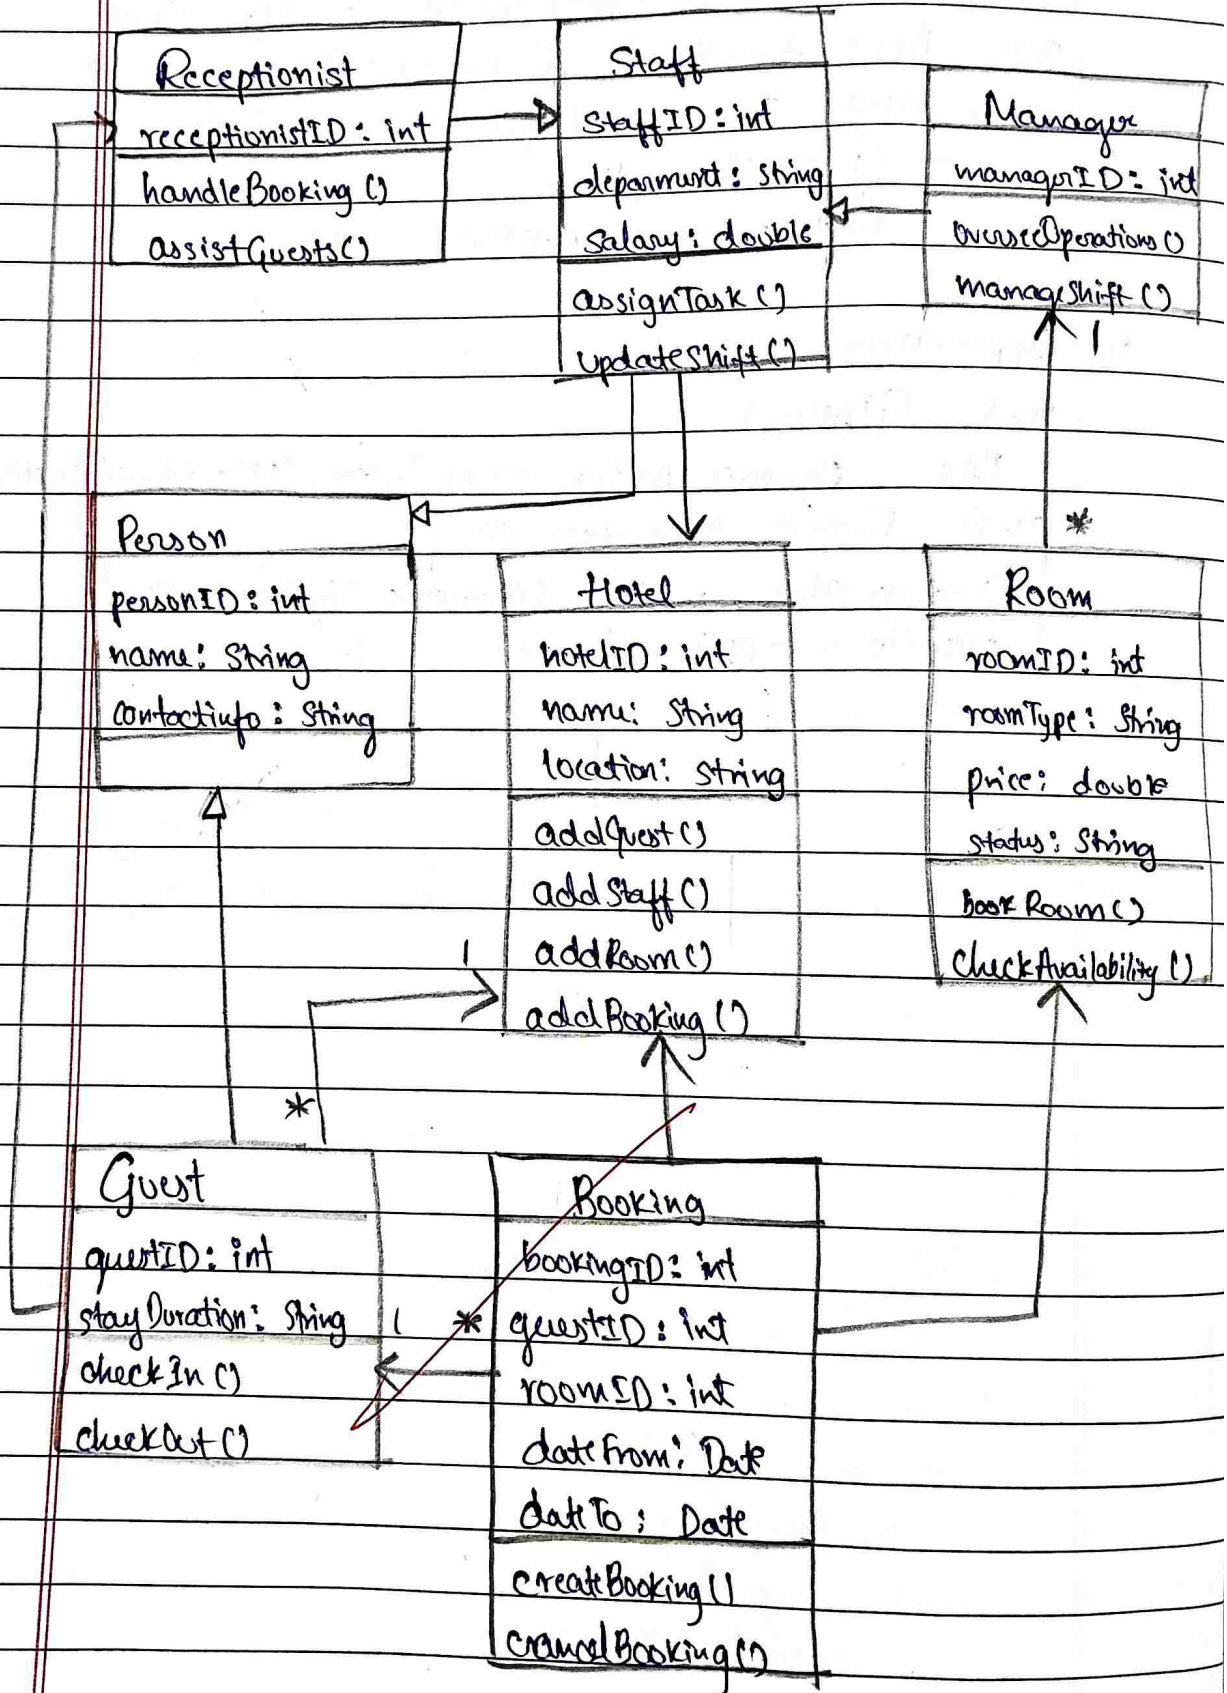 Receptionist
receptionistID : int
handleBooking ()
assistGuests()
Staff
StaffID : int
deparment : String
Salary : double
assignTask ()
updateShift ()
Manager
managerID : int
overseeOperations ()
manageShift ()
1
*
Person
personID : int
name : String
contactinfo : String
Hotel
hotelID : int
name : String
location : String
addGuest ()
addStaff ()
addRoom ()
addBooking ()
Room
roomID : int
roomType : String
price : double
status : String
book Room ()
checkAvailability ()
1
*
Guest
guestID : int
stayDuration : String
checkIn ()
checkOut ()
1 *
Booking
bookingID : int
guestID : int
roomID : int
dateFrom : Date
dateTo : Date
createBooking ()
cancelBooking ()